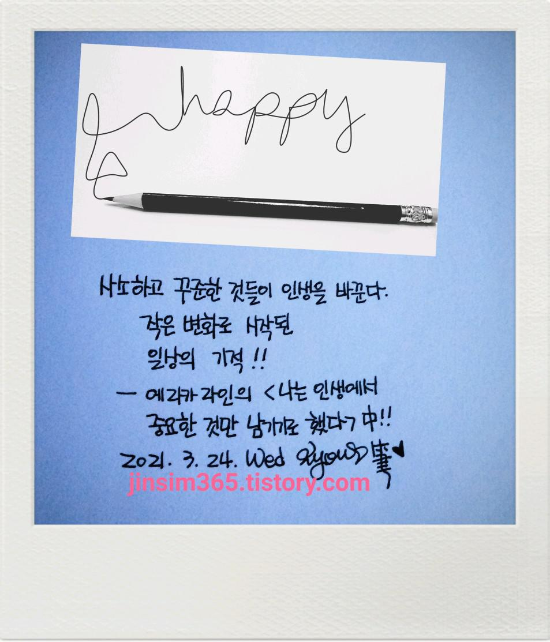 happy
사소하고 꾸준한 것들이 인생을 바꾼다.
작은 변화로 시작된
일상의 기적!!
— 에리카 라인의 <나는 인생에서
중요한 것만 남기기로 했다> 中!!
2021. 3. 24. Wed 筆♥
jinsim365.tistory.com